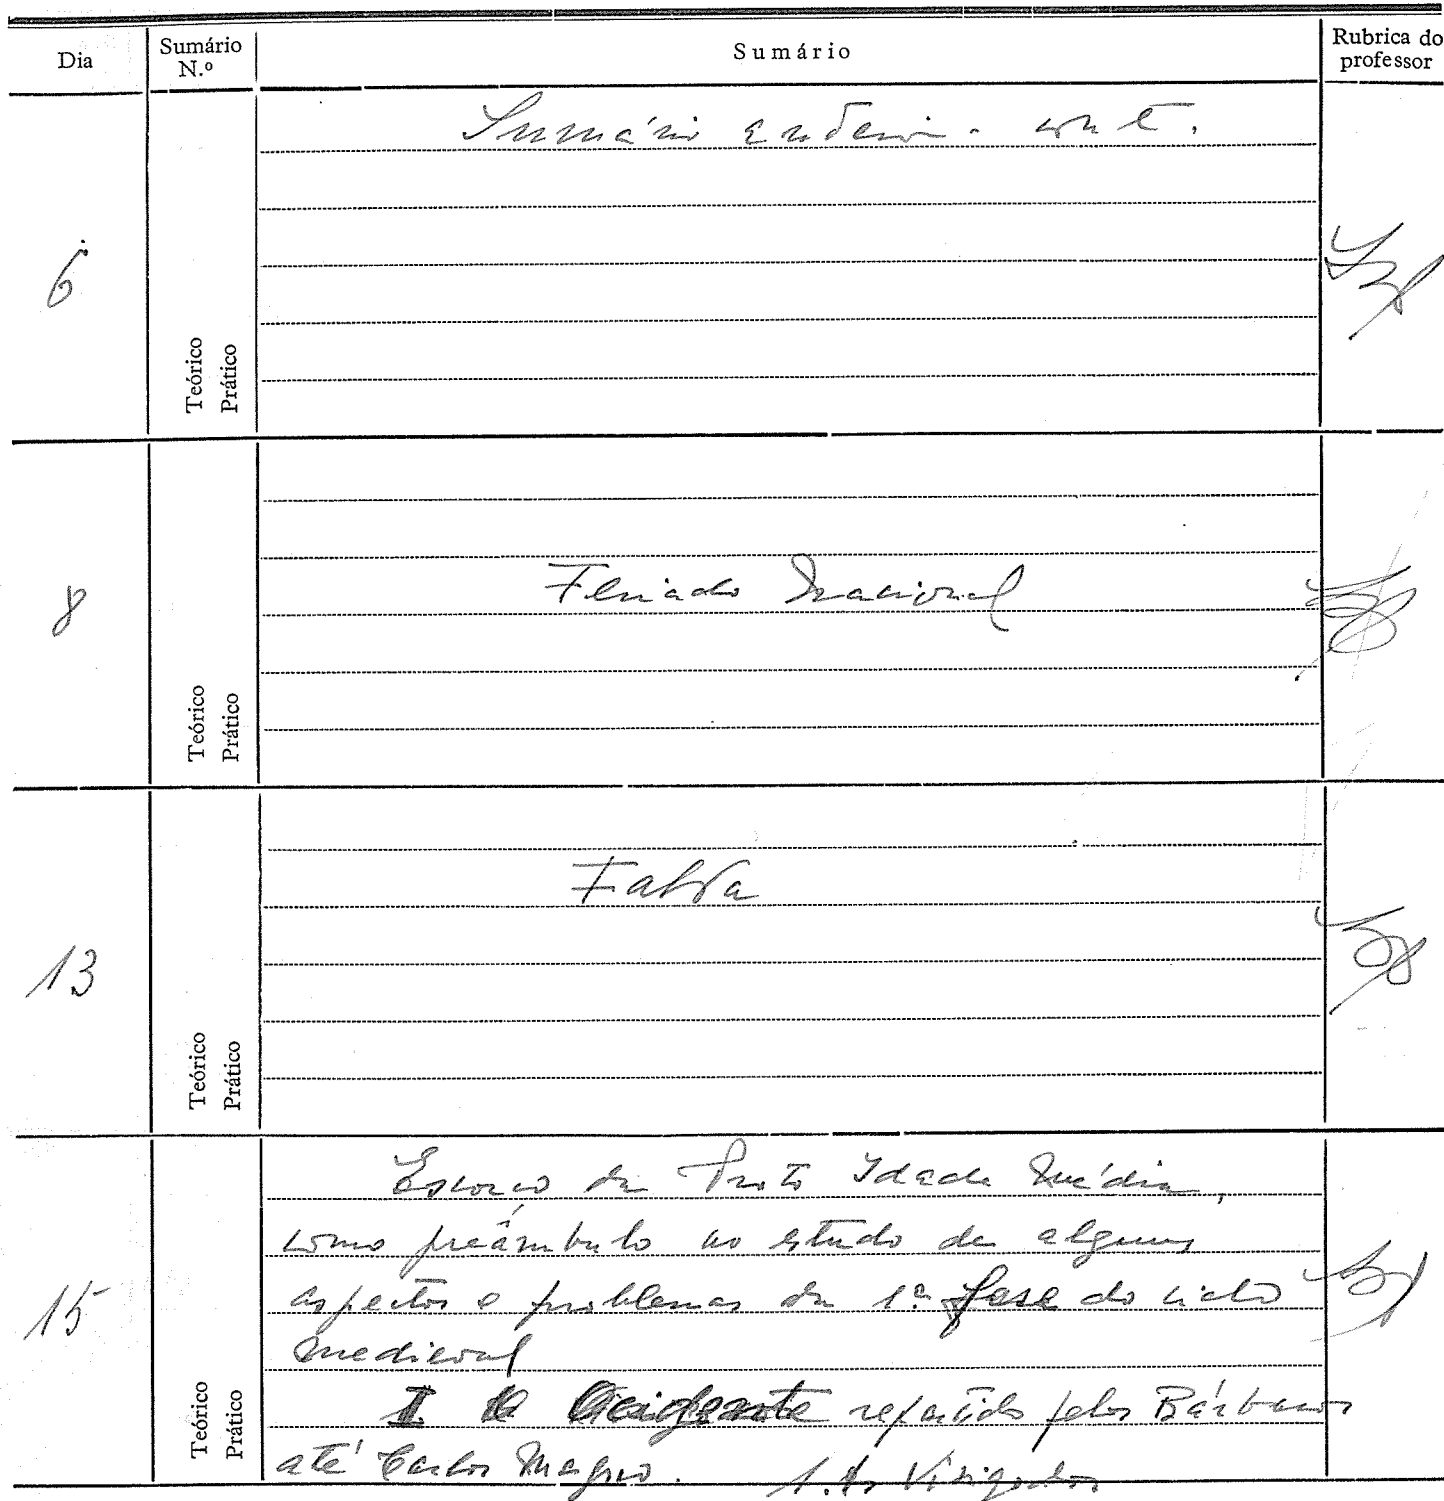 Dia Sumário N.º Sumário Rubrica do professor
Sumário anterior. cont.
6
Teórico
Prático
Feriado Nacional
8
Teórico
Prático
Falta
13
Teórico
Prático
Esboço da Proto Idade Média,
como preâmbulo ao estudo de alguns
aspectos e problemas da 1ª fase do ciclo
15
medieval
I O Ocidente repartido pelos Bárbaros
Teórico
Prático
até Carlos Magno. 1. Os Visigodos